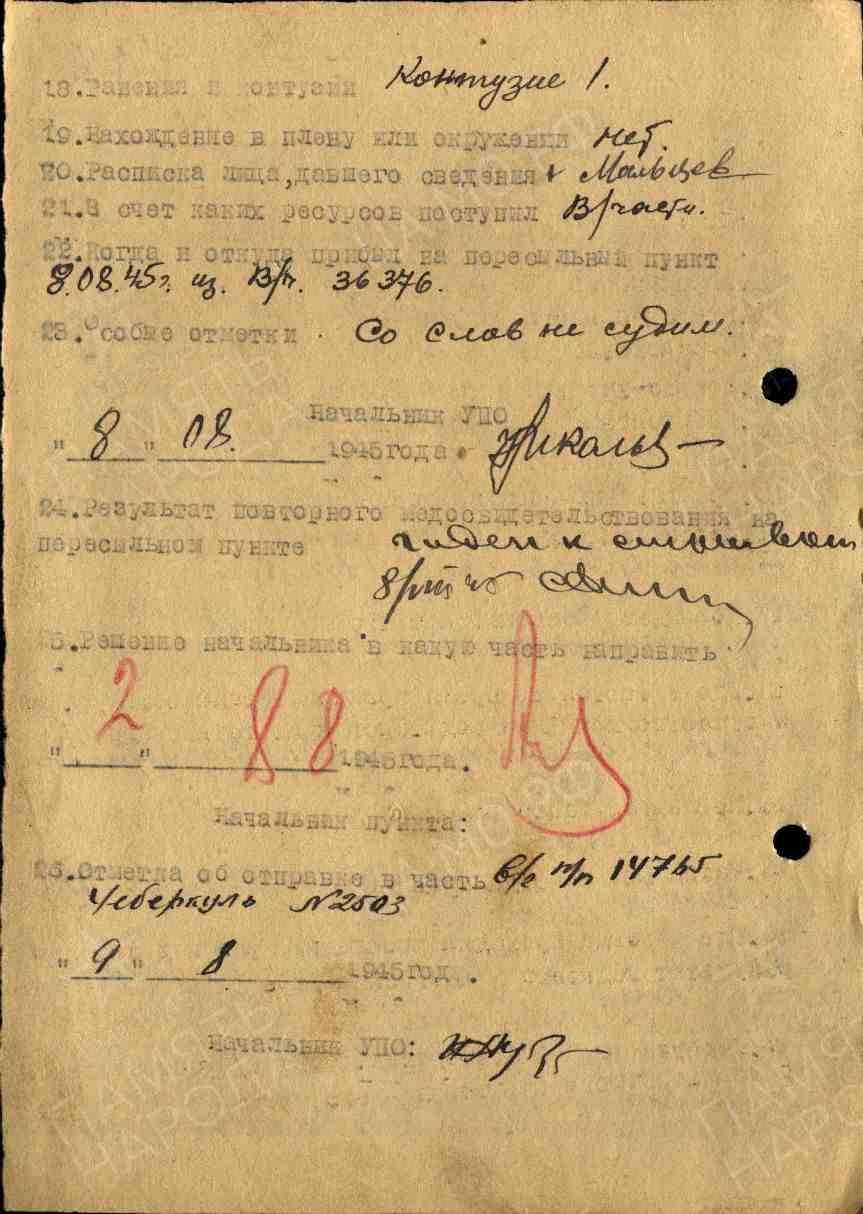 18.Ранения и контузии Контузие 1.
19.Нахождение в плену или окружении нет.
20.Расписка лица,давшего сведения Мальцев
21.В счет каких ресурсов поступил В/части.
22.Когда и откуда прибыл на пересыльный пункт
8.08.45г. из. В/ч. 36376.
23.Особые отметки Со слов не судим.
Начальник УПО
"8" 08. 1945года.
24.Результат повторного медосвидетельствования на
пересыльном пункте годен к
8/VIII 45
25.Решение начальника в какую часть направить
2
" " 8 8 1945года.
Начальник пункта:
26.Отметка об отправке в часть п/п 14765
Чебаркуль N2503
"9" 8 1945год.
Начальник УПО: